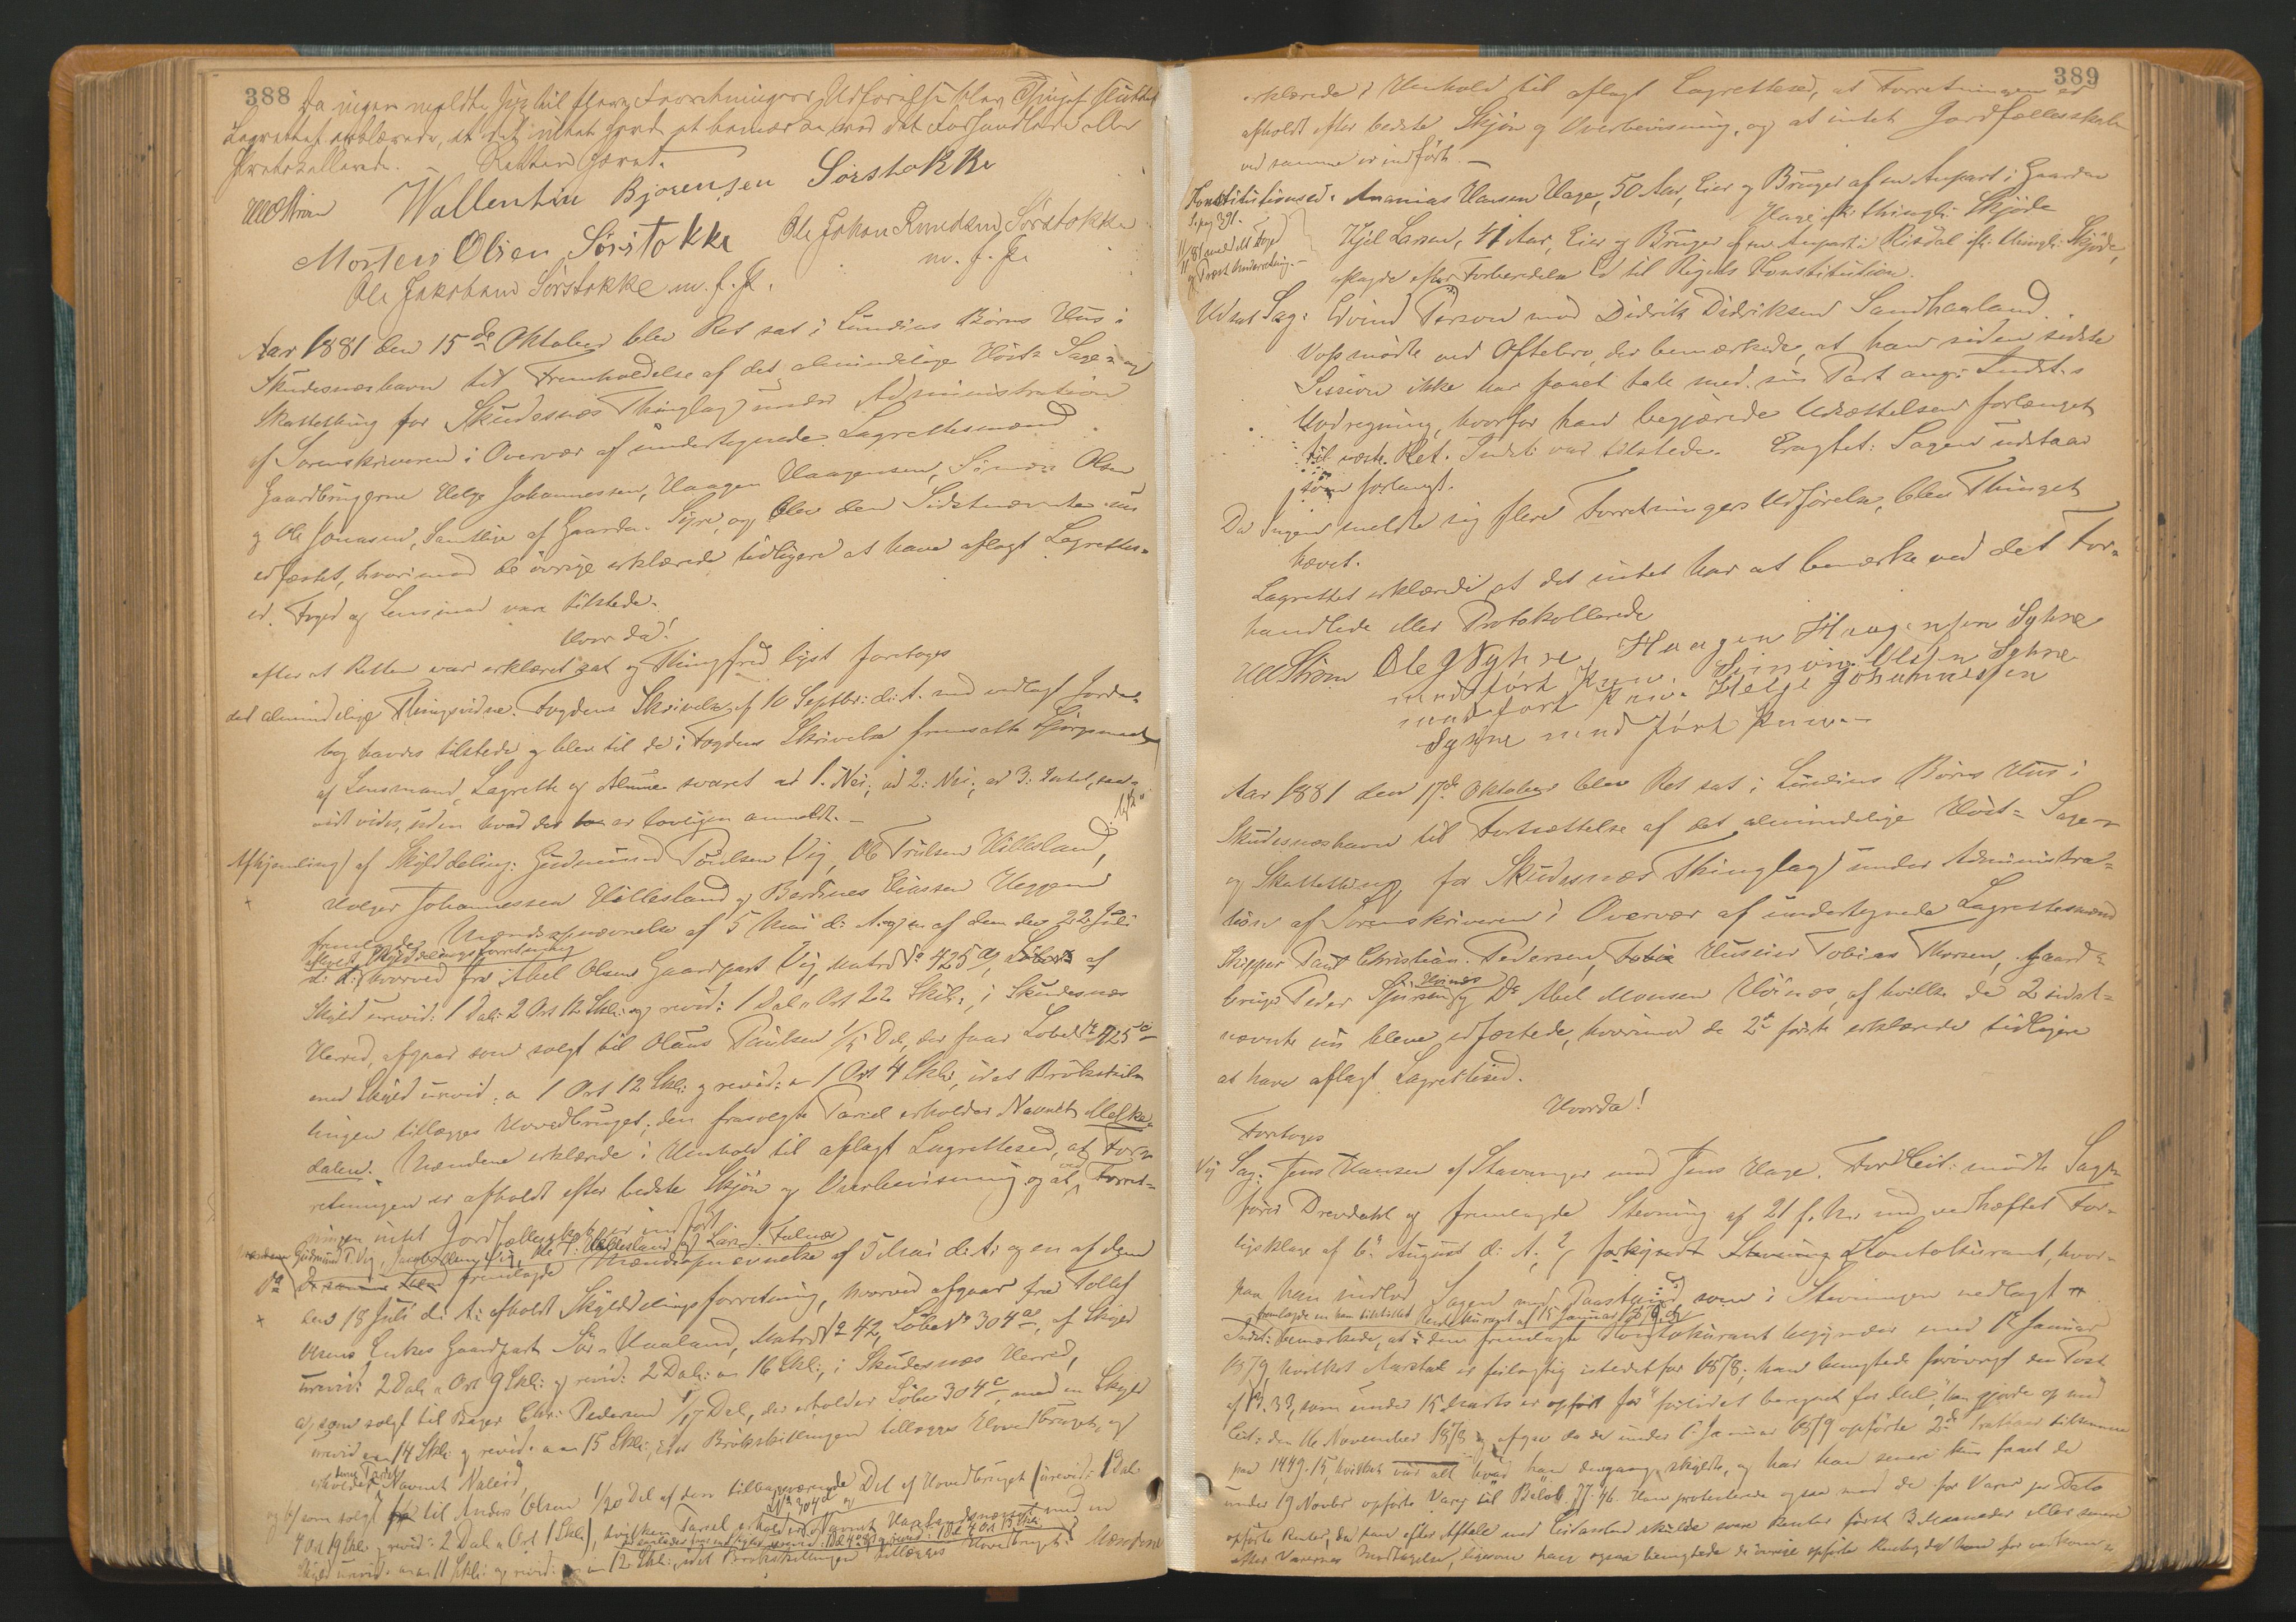 388
Da ingen meldte sig til flere Forretningers Udførelse blev Thinget sluttet
Lagrettet erklærede, at det intet havde at bemærke ved det Forhandlede eller
Protokollerede. Retten hævet.
Wallentin Bjorensen Sörstokke
Morten Olsen Sørstokke Ole Johan Knudsen Sørstokke
m. f. P.
Ole Jakobsen Sørstokke m. f. P.
Aar 1881 den 15de Oktober blev Ret sat i Lundins Børns Hus i
Skudesneshavn til Fremholdelse af det almindelige Høst- Sage- og
Skattething for Skudesnes Thinglag under Administration
af Sorenskriveren i Overvær af undertegnede Lagrettesmænd
Gaardbrugerne Helge Johannessen, Haagen Haagensen, Simon Olsen
og Ole Jonassen, Samtlige af Gaarden Syre, og blev den Sidstnævnte nu
edfæstet, hvorimod de øvrige erklærede tidligere at have aflagt Lagrettes-
ed. Foged og Lensmand vare tilstede.
Hvor da!
efter at Retten var erklæret sat og Thingfred lyst foretoges
det almindelige Thingsvidne. Fogdens Skrivelse af 10 Septbr: d: A. med vedlagt Jorde-
bog havdes tilstede og blev til de i Fogdens Skrivelse fremsatte Spørgsmaal
af Lensmand, Lagrette og Almue svaret ad 1. Nei, ad 2: Nei, ad 3: Intet, saa-
vidt vides, uden hvad der er lovligen anmeldt.
Afhjemling af Skylddeling: Gudmund Poulsen Vig, Ole Trulsen Hillesland,
Holger Johannessen Hillesland og Berdines Eliassen Heggem
fremlagde Mændsopnævnelse af 5 Mai d: A. og en af dem den 22 Juli
d: A: afholdt Skylddelingsforretning hvorved fra Abel Olsens Gaardpart Vig, Matr No 425 a, Løbe af
Skyld urevid: 1 Dal: 2 Ort 12 Skl: og revid: 1 Dal. Ort 22 Skil:, i Skudesnes
Herred, afgaar som solgt til Olaus Paulsen 1/5 Del, der faar Løbe No 425 c
med Skyld urevid: a 1 Ort 12 Skl: og revid: a 1 Ort 4 Skl:, idet Brøkskil-
lingen tillægges Hovedbruget; den frasolgte Parcel erholder Navnet Melke-
dalen. Mændene erklærede i Henhold til aflagt Lagrettesed, at For-
retningen er afholdt efter bedste Skjøn og Overbevisning og at ved Forret-
ningen intet Jordfællesskab er indført
Gudmund P. Vig, Ole T. Hillesland og Lars Falnæs
Do De samme Mænd fremlagde Mændsopnævnelse af 5 Mai d: A: og en af dem
den 18 Juli d: A: afholdt Skylddelingsforretning, hvorved afgaar fra Tollef
Olsens Enkes Gaardpart Sør-Haaland, Matr No 42, Løbe No 304 a, af Skyld
urevid: 2 Dal. Ort 9 Skl: og revid: 2 Dal: 16 Skl:, i Skudesnes Herred,
a) som solgt til Chr: Pedersen 1/17 Del, der erholder Løbe 304 c med en Skyld
urevid 14 Skl: og revid: 15 Skl:, idet Brøkskillingen tillægges Hovedbruget, og
erholder Navnet
og b) som solgt til Anders Olsen 1/20 Del af den tilbageværende Del af Hovedbruget (urevid: 1 Dal
4 Ort 19 Skl: og revid: 2 Dal Ort 1 Skl:), hvilken Parcel erholder No 304 d og Navnet med en
Skyld urevid: 11 Skl: og revid: 12 Skl:, idet Brøkskillingen tillægges Hovedbruget. Mændene
389
erklærede i Henhold til aflagt Lagrettesed, at Forretningen er
afholdt efter bedste Skjøn og Overbevisning, og at intet Jordfællesskab
ved samme er indført.
Konstitutionsed: Ananias Hansen Hage, 50 Aar, Eier og Bruger af en Anpart i Gaarden
Hage ifl: thinglæst Skjøde
Kjel Larsen, 41 Aar, Eier og Bruger af en Anpart i Risdal ifl: thingl: Skjøde,
aflagde efter Forberedelse Ed til Rigets Konstitution.
Udsat Sag: Eivind Person mod Didrik Didriksen Sandhaaland.
Voss mødte ved Oftebro, der bemærkede, at han siden sidste
Session ikke har faaet tale med sin Part ang: Indst:s
Modregning, hvorfor han begjærede Udsættelsen forlænget
til næste Ret. Indst: var tilstede. Eragtet: Sagen udstaar
som forlangt.
Da Ingen meldte sig flere Forretningers Udførelse, blev Thinget
hævet.
Lagrettet erklærede at det intet har at bemærke ved det For-
handlede eller Protokollerede
Ole J Syhre, Haagen Haagensen Syhre
med ført Pen. Simon Olsen Syhre
med ført Pen. Helge Johannessen
Syhre med ført Pen.
Aar 1881 den 17de Oktober blev Ret sat i Lundins Børns Hus i
Skudesneshavn til Fortsættelse af det almindelige Høst- Sage-
og Skattething for Skudesnes Thinglag under Administra-
tion af Sorenskriveren i Overvær af undertegnede Lagrettesmænd
Skipper Paul Christian Pedersen, Huseier Tobias Thorsen, Gaard-
bruger Peder Sjursen Høines og Do Abel Monsen Høines, af hvilke de 2 sidst-
nævnte nu bleve edfæstede, hvorimod de 2de første erklærede tidligere
at have aflagt Lagrettesed.
Hvorda!
Foretoges
Ny Sag: Jens Hansen af Stavanger mod Jens Hage. For Cit: mødte Sag-
fører Drevdahl og fremlagde Stevning af 21 f. M. med vedhæftet For-
ligsklage af 6 August d: A: og forkyndt Kontokurant, hvor-
paa han indlod Sagen med Paastand som i Stevningen nedlagt
Indst: bemærkede, at i den fremlagte Kontokurant begynder med 1 Januar
1879, hvilket Aarstal er feilagtig istedetfor 1878; han benegtede forøvrigt den Post
af 33, som under 15 Marts er opført for forlidet beregnet for Mel, han gjorde op med
Cit: den 16 November 1878 og afgav da de under 1 Januar 1879 opførte 2de tilsammen
paa 1449.15, hvilket var alt hvad han dengang skyldte, og har han senere kun faaet de
under 19 Novbr opførte Varer til Beløb 77.46. Han protesterede ogsaa mod de for Varer pr Dato
opførte Renter, da han efter Aftale med Citanten skulde svare Renter først 3 Maaneder eller senere
efter Varernes Modtagelse, ligesom han ogsaa benegtede de øvrige opførte Renter, da